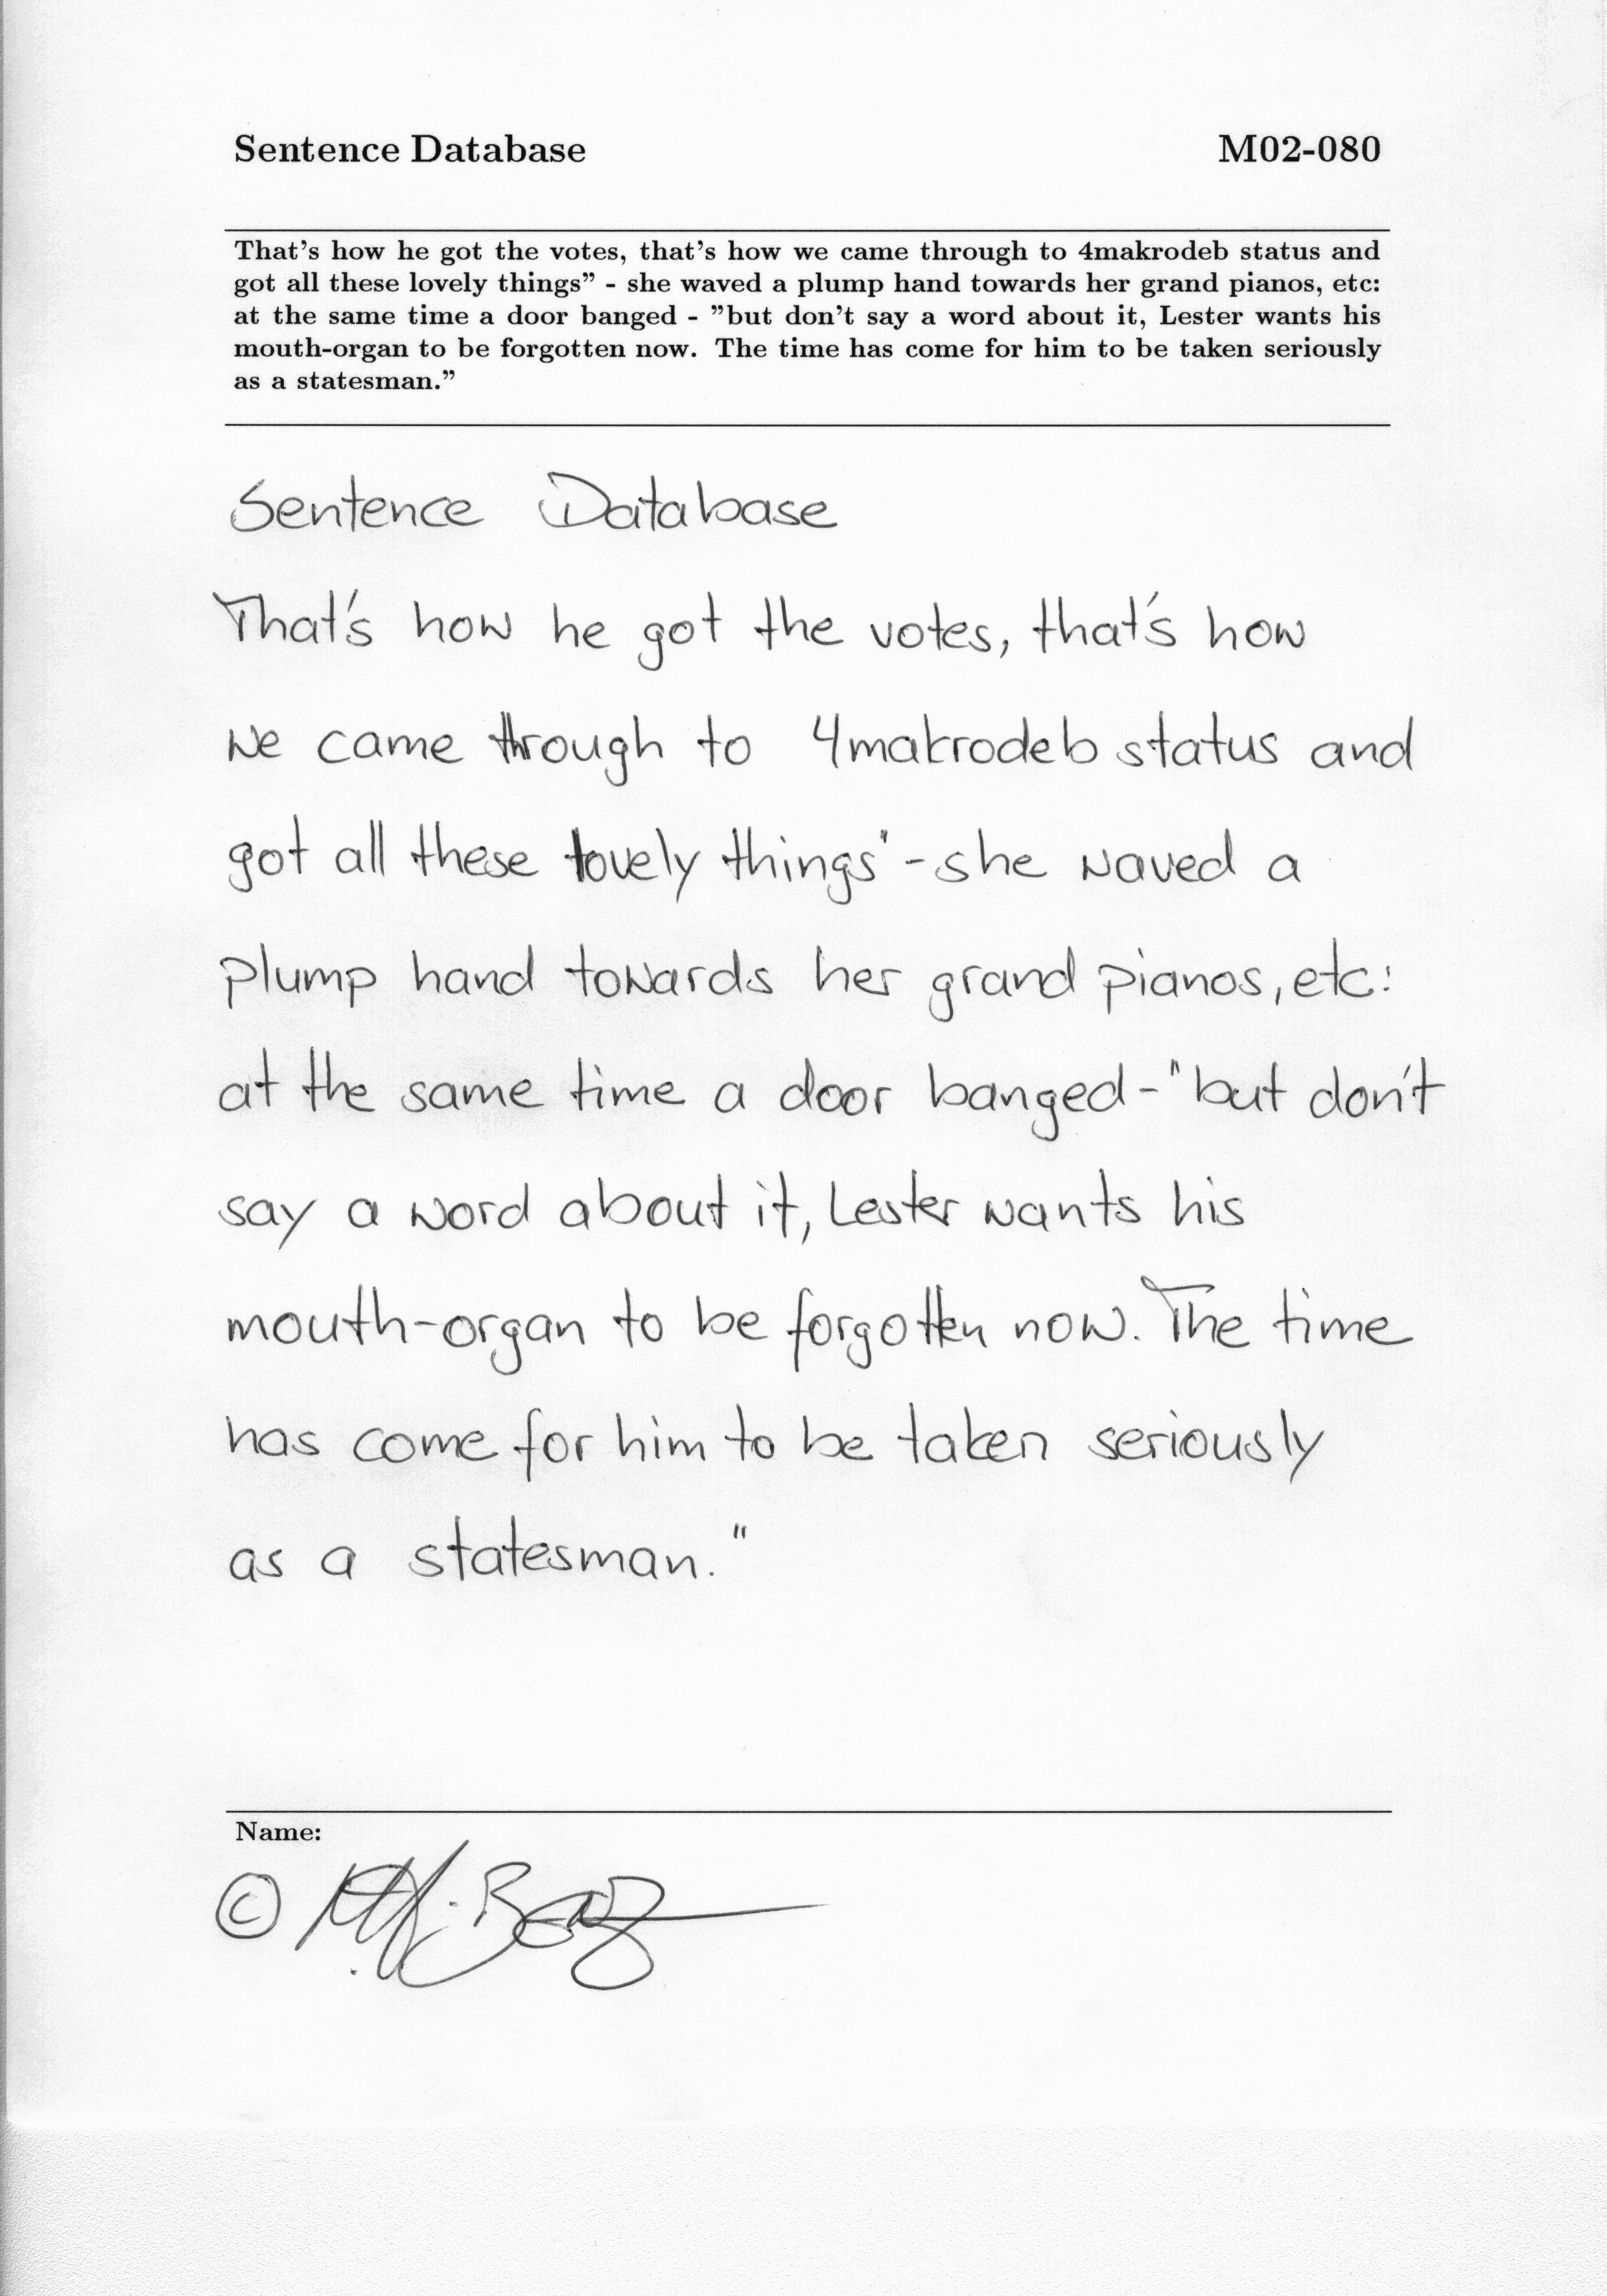 Sentence Database M02-080
That's how he got the votes, that's how we came through to 4makrodeb status and
got all these lovely things" - she waved a plump hand towards her grand pianos, etc:
at the same time a door banged - "but don't say a word about it, Lester wants his
mouth-organ to be forgotten now. The time has come for him to be taken seriously
as a statesman."
Sentence Database
That's how he got the votes, that's how
we came through to 4makrodeb status and
got all these lovely things" - she waved a
plump hand towards her grand pianos, etc:
at the same time a door banged - "but don't
say a word about it, Lester wants his
mouth-organ to be forgotten now. The time
has come for him to be taken seriously
as a statesman."
Name:
©